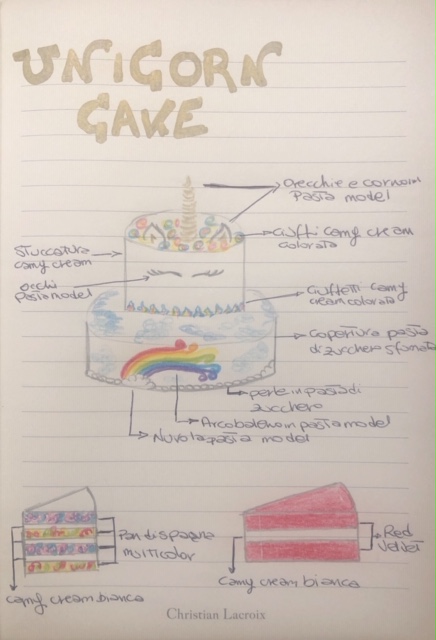 UNIGORN
CAKE
Orecchie e corno in
Pasta model
Ciuffi camy cream
colorata
Stuccatura
camy cream
occhi
pasta model
Ciuffetti camy
cream colorata
Copertura pasta
di zucchero sfumata
perle in pasta di
zucchero
Arcobaleno in pasta model
Nuvola pasta model
Pan di spagna
multicolor
Red
Velvet
Camy cream bianca
camy cream bianca
Christian Lacroix